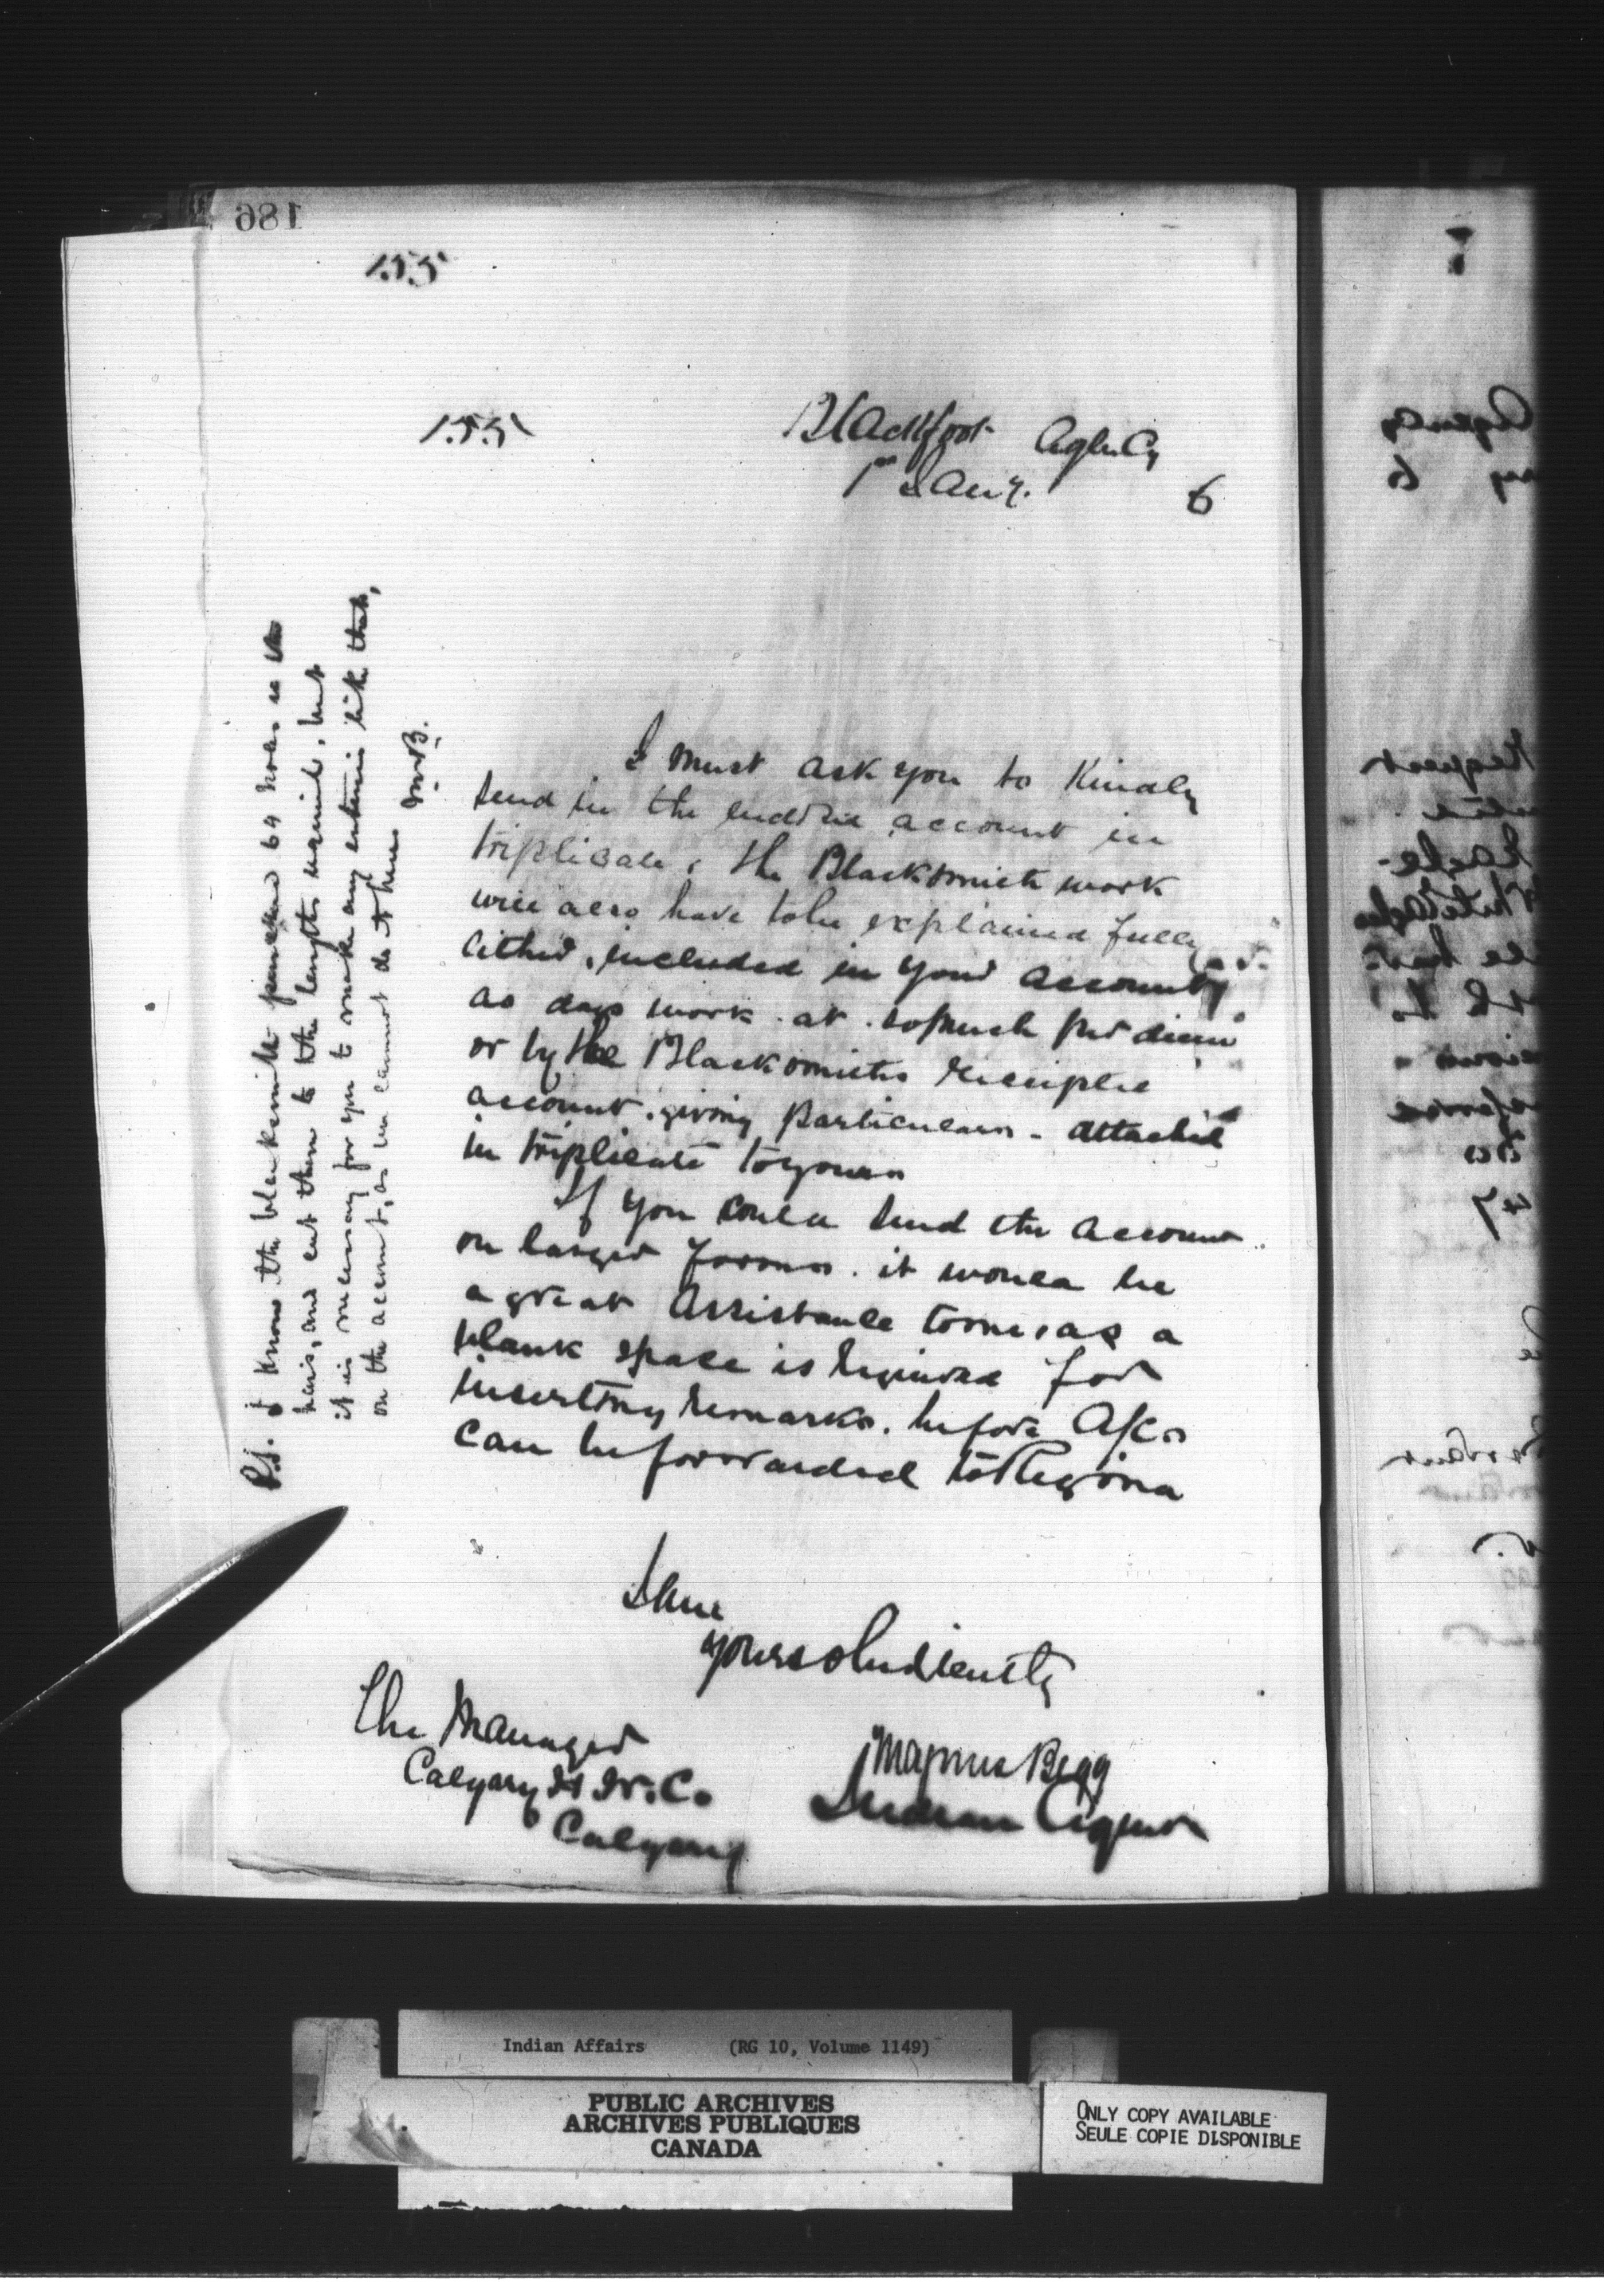 186
155
155
Blackfoot Agency
1st Jany. 6
I must ask you to Kindly
send in the account in
triplicate, the Blacksmith work
will also have to be explained fully
either, included in your account
as days work at so much per diem
or by the Blacksmiths receipted
account. giving particulars - attached
in triplicate to yours
If you could send the account
on larger forms. it would be
a great assistance to me, as a
blank space is required for
inserting remarks. before A/cs
can be forwarded to Regina
I have
yours obediently
Magnus Begg
Indian Agent
The Manager
Calgary H W. Co.
Calgary
P.S. I know the blacksmith punched 64 holes in the
bars, and cut them to the lengths required, but
it is necessary for you to make any entries like that,
on the account, as we cannot do it here
M.B.
Agency
6
Indian Affairs (RG 10, Volume 1149)
PUBLIC ARCHIVES
ARCHIVES PUBLIQUES
CANADA
ONLY COPY AVAILABLE
SEULE COPIE DISPONIBLE